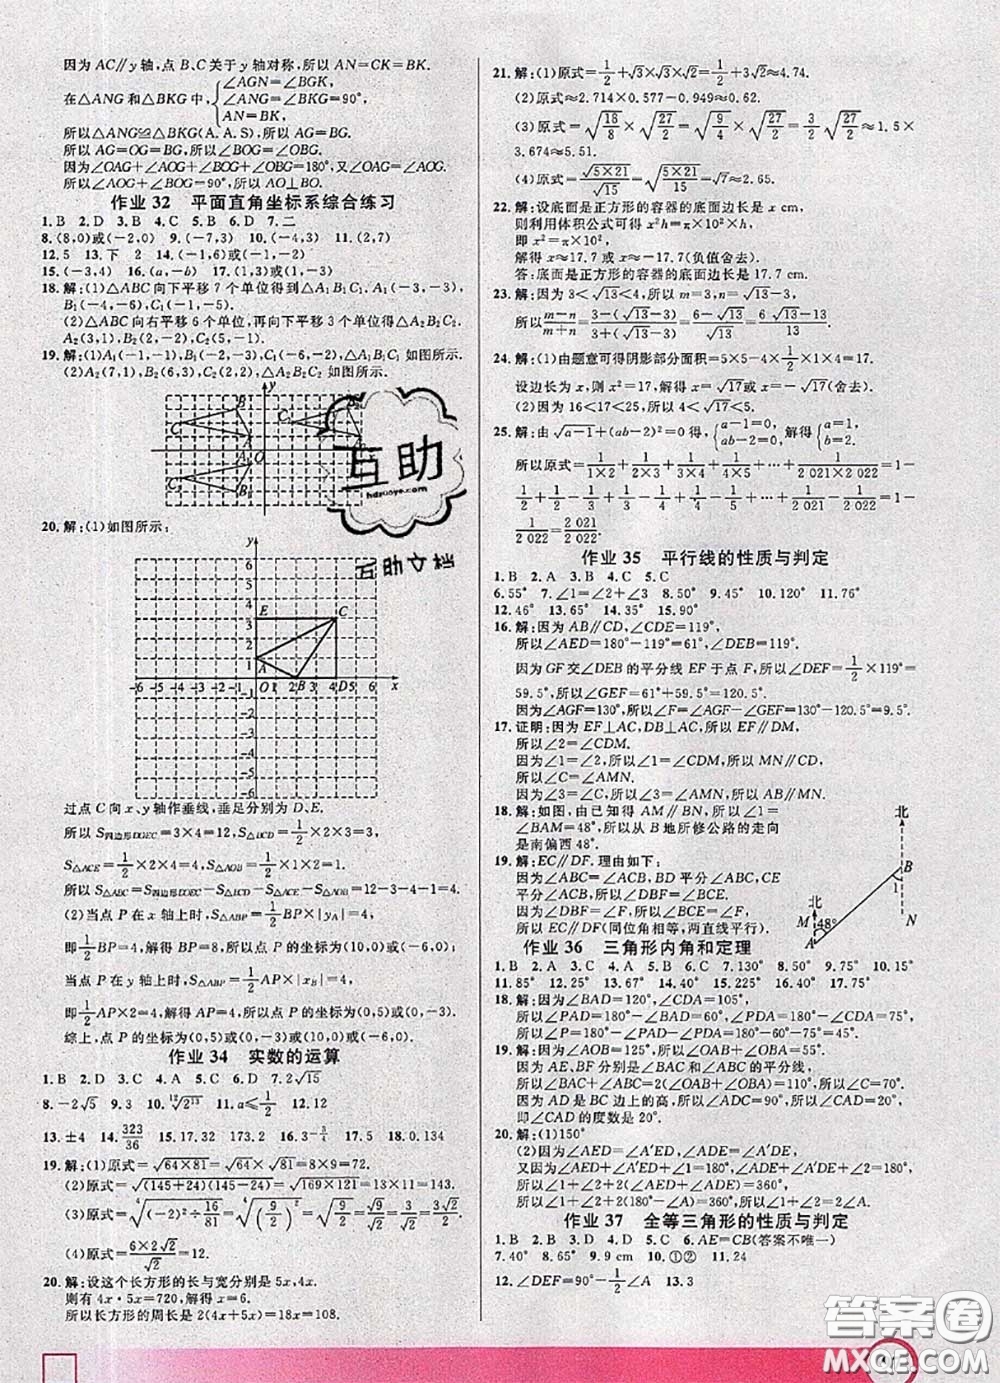 因为 AC∥y 轴,点 B、C 关于 y 轴对称,所以 AN=CK=BK.
在△ANG 和△BKG 中{∠AGN=∠BGK,
∠ANG=∠BKG=90°,
AN=BK,
所以△ANG≌△BKG(A.A.S),所以 AG=BG.
所以 AG=OG=BG,所以∠BOG=∠OBG.
因为∠OAG+∠AOG+∠BOG+∠OBG=180°,又∠OAG=∠AOG,
所以∠AOG+∠BOG=90°,所以 AO⊥BO.
作业 32 平面直角坐标系综合练习
1. B 2. D 3. B 4. C 5. B 6. D 7. 二
8. (8,0)或(-2,0) 9. (-7,3) 10. (-4,3) 11. (2,7)
12. 5 13. 下 2 14. (-1,6)或(-1,-2)
15. (-3,4) 16. (a,-b) 17. (1,3)或(1,-3)
18. 解:(1)△ABC 向下平移 7 个单位得到△A₁B₁C₁. A₁(-3,-3),
B₁(-4,-6),C₁(-1,-5).
(2)△ABC 向右平移 6 个单位,再向下平移 3 个单位得到△A₂B₂C₂.
A₂(3,1),B₂(2,-2),C₂(5,-1).
19. 解:(1)A₁(-1,-1),B₁(-3,-4),△A₁B₁C₁ 如图所示.
(2)A₂(7,1),B₂(6,3),C₂(2,2),△A₂B₂C₂ 如图所示.
y
x
O
互助
hdzuoye.com
20. 解:(1)如图所示:
y
6
5
4
E 3 C
2
1
A
-6 -5 -4 -3 -2 -1 O 1 2 B 3 4 D 5 6 x
-1
-2
-3
-4
-5
-6
过点 C 向 x、y 轴作垂线,垂足分别为 D、E.
所以 S四边形DOEC=3×4=12,S△BCD=1/2×2×3=3,
S△ACE=1/2×2×4=4,S△AOB=1/2×2×1=1.
所以 S△ABC=S四边形DOEC-S△BCD-S△ACE-S△AOB=12-3-4-1=4.
(2)当点 P 在 x 轴上时,S△ABP=1/2BP×|y_A|=4,
即1/2BP=4,解得 BP=8,所以点 P 的坐标为(10,0)或(-6,0);
当点 P 在 y 轴上时,S△ABP=1/2AP×|x_B|=4,
即1/2AP×2=4,解得 AP=4,所以点 P 的坐标为(0,5)或(0,-3).
综上,点 P 的坐标为(0,5)或(0,-3)或(10,0)或(-6,0).
作业 34 实数的运算
1. B 2. D 3. C 4. A 5. C 6. D 7. 2√15
8. -2√5 9. 3 10. ¹²√2¹³ 11. a≤1/2 12. 12
13. ±4 14. 323/36 15. 17.32 173.2 16. 3^(-3/4) 17. 5 18. 0.134
19. 解:(1)原式=√(64×81)=√64×√81=8×9=72.
(2)原式=√((145+24)(145-24))=√(169×121)=13×11=143.
(3)原式=⁴√((-2)²÷16/81)=⁴√((9/2)²)=√(9/2)=3/√2=3√2/2.
(4)原式=6×2√2/√2=12.
20. 解:设这个长方形的长与宽分别是 5x,4x.
则有 4x·5x=720,解得 x=6.
所以长方形的周长是 2(4x+5x)=18x=108.
21. 解:(1)原式=1/2+√3×√3×√3=1/2+3√2≈4.74.
(2)原式≈2.714×0.577-0.9487≈0.62.
(3)原式=√(18/8)×√(27/2)=√(9/4)×√(27/2)=3/2×√(27/2)≈1.5×
3.674≈5.51.
(4)原式=√(5×21)/√(5×21)=1.
22. 解:设底面是正方形的容器的底面边长是 x cm,
则利用体积公式可得 x²h=π×10²×h,
即 x²=π×10².
解得 x≈17.7 或 x≈-17.7(负值舍去).
答:底面是正方形的容器的底面边长是 17.7 cm.
23. 解:因为 3<√13<4,所以 m=3,n=√13-3,
所以(m-n)/(m+n)=(3-(√13-3))/(3+(√13-3))=(6-√13)/√13=(6√13-13)/13.
24. 解:(1)由题意可得阴影部分面积=5×5-4×1/2×2×1=17.
设边长为 x,则 x²=17,解得 x=√17或 x=-√17(舍去).
(2)因为 16<17<25,所以 4<√17<5.
25. 解:由√(a-1)+(ab-2)²=0得,{a-1=0, ab-2=0, 解得{a=1, b=2.
所以原式=1/(1×2)+1/(2×3)+1/(3×4)+1/(4×5)+…+1/(2 021×2 022)=1-
1/2+1/2-1/3+1/3-1/4+1/4-1/5+…+1/2 021-1/2 022=1-
1/2 022=2 021/2 022.
作业 35 平行线的性质与判定
1. B 2. A 3. D 4. C 5. C
6. 55° 7. ∠1=∠2+∠3 8. 50° 9. 45° 10. 120° 11. 76°
12. 46° 13. 65° 14. 35° 15. 90°
16. 解:因为 AB∥CD,∠CDE=119°,
所以∠AED=180°-119°=61°,∠DEB=119°.
因为 GF 交∠DEB 的平分线 EF 于点 F,所以∠DEF=1/2×119°=
59.5°,所以∠GEF=61°+59.5°=120.5°.
因为∠AGF=130°,所以∠F=∠AGF-∠GEF=130°-120.5°=9.5°.
17. 证明:因为 EF⊥AC,DB⊥AC,所以 EF∥DM,
所以∠2=∠CDM.
因为∠1=∠2,所以∠1=∠CDM,所以 MN∥CD,
所以∠C=∠AMN.
因为∠3=∠C,所以∠3=∠AMN,所以 AB∥MN.
18. 解:如图,由已知得 AM∥BN,所以∠1=
∠BAM=48°,所以从 B 地所修公路的走向
是南偏西 48°.
北
B
1
北
M 48°
A
N
19. 解:EC∥DF. 理由如下:
因为∠ABC=∠ACB,BD 平分∠ABC,CE
平分∠ACB,所以∠DBF=∠BCE.
因为∠DBF=∠F,所以∠BCE=∠F,
所以 EC∥DF(同位角相等,两直线平行).
作业 36 三角形内角和定理
1. B 2. A 3. C 4. D 5. C 6. C 7. 130° 8. 50° 9. 75° 10. 15°
11. 85° 12. 25° 13. 67° 14. 40° 15. 225° 16. 40° 17. 20°
18. 解:因为∠BAD=120°,∠CDA=105°,
所以∠PAD=180°-120°=60°,∠PDA=180°-105°=75°,
所以∠P=180°-∠PAD-∠PDA=180°-60°-75°=45°.
19. 解:因为∠AOB=125°,所以∠OAB+∠OBA=55°,
因为 AE、BF 分别是∠BAC 和∠ABC 的平分线,
所以∠BAC+∠ABC=2(∠OAB+∠OBA)=110°,所以∠C=70°.
因为 AD 是 BC 边上的高,所以∠ADC=90°,所以∠CAD=20°,
即∠CAD 的度数是 20°.
20. 解:(1)150°
(2)因为∠AED=∠A′ED,∠ADE=∠A′DE,
又因为∠AED+∠A′ED+∠1=180°,∠ADE+∠A′DE+∠2=180°,
所以∠1+2∠AED+∠2+2∠ADE=360°,
所以∠1+∠2+2(180°-∠A)=360°,所以∠1+∠2=2∠A.
作业 37 全等三角形的性质与判定
1. B 2. B 3. D 4. D 5. C 6. AE=CB(答案不唯一)
7. 40° 8. 65° 9. 9 cm 10. ①② 11. 24
12. ∠DEF=90°-1/2∠A 13. 3
答案圈
MXQE.COM